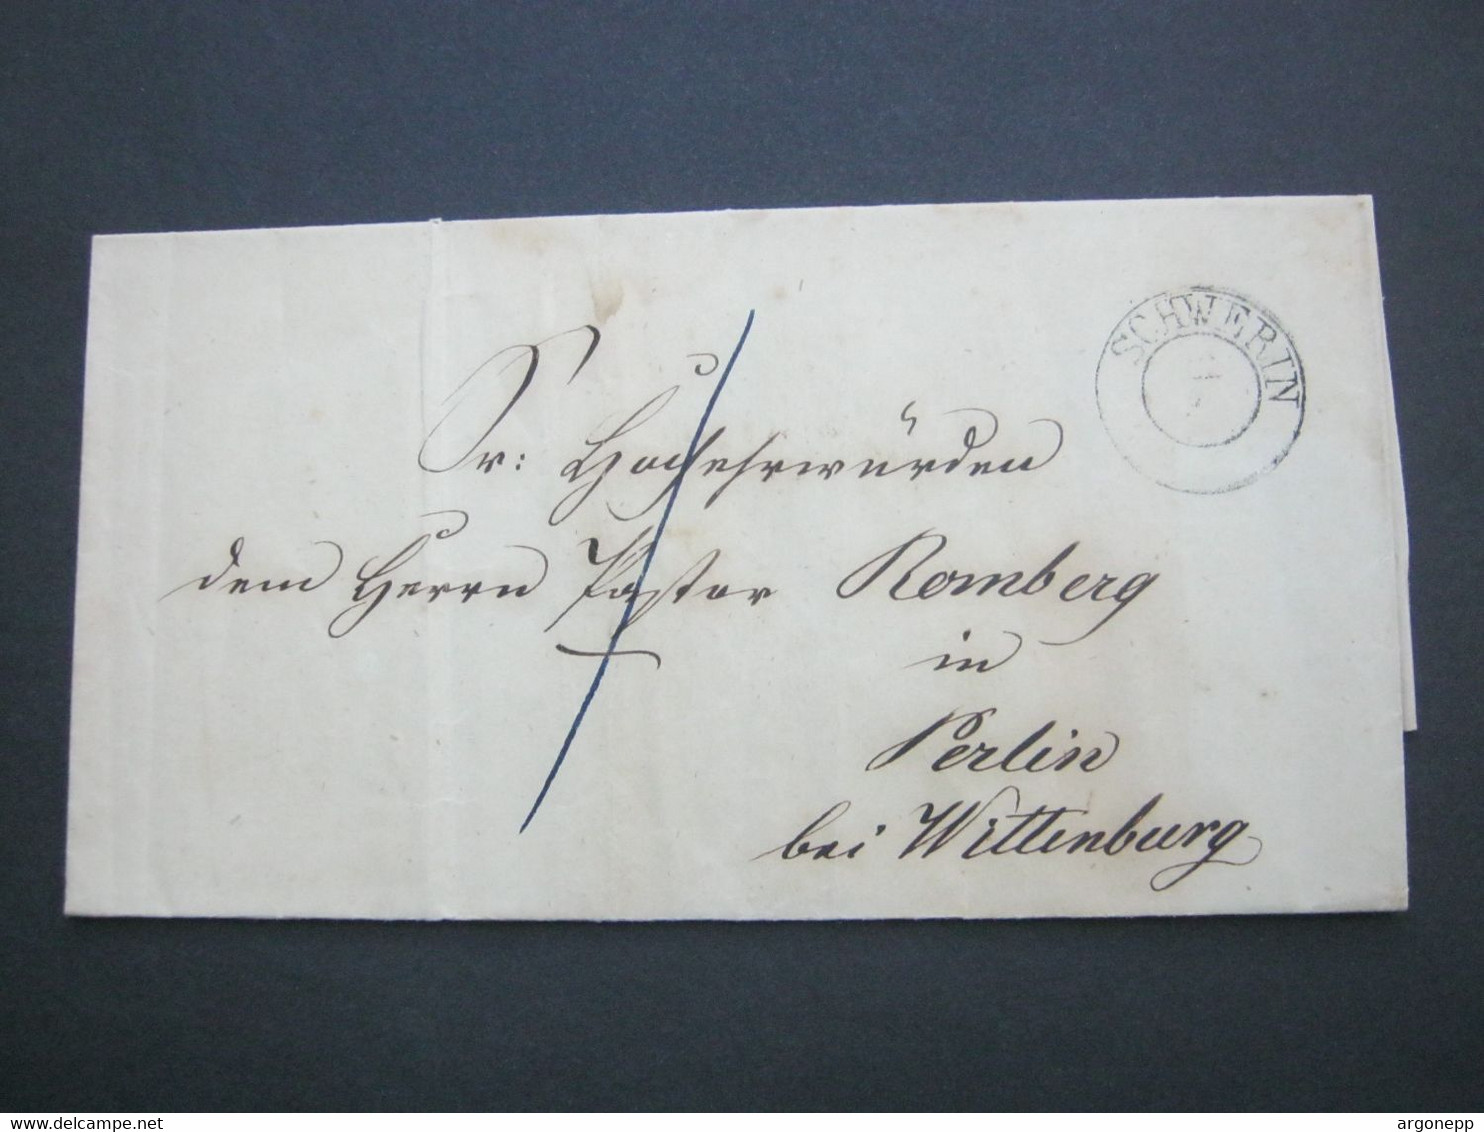 SCHWERIN
Sr: Hochehrwürden
dem Herrn Pastor Romberg
in
Perlin
bei Wittenburg
www.delcampe.net
argonepp